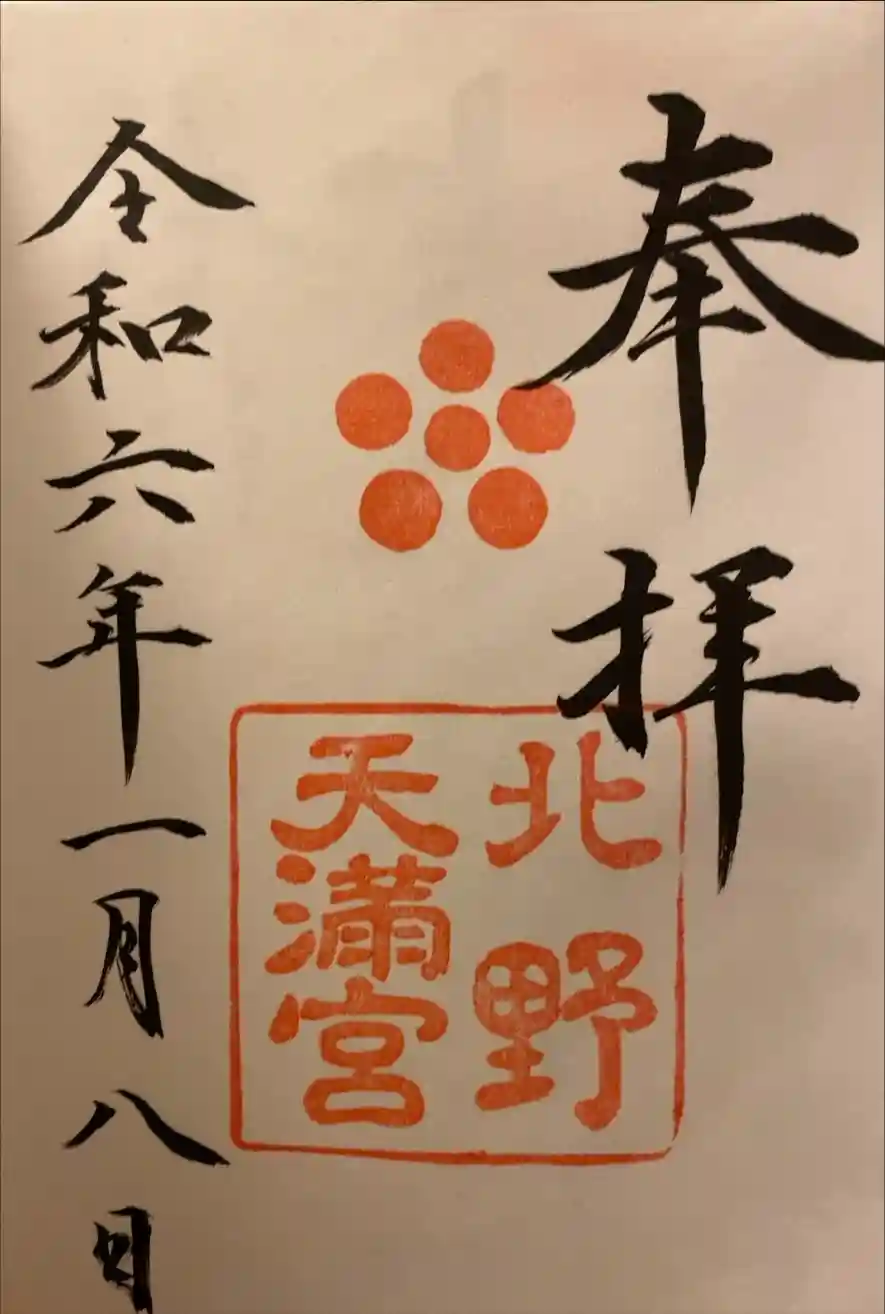 奉拝
北野
天満宮
令和六年一月八日